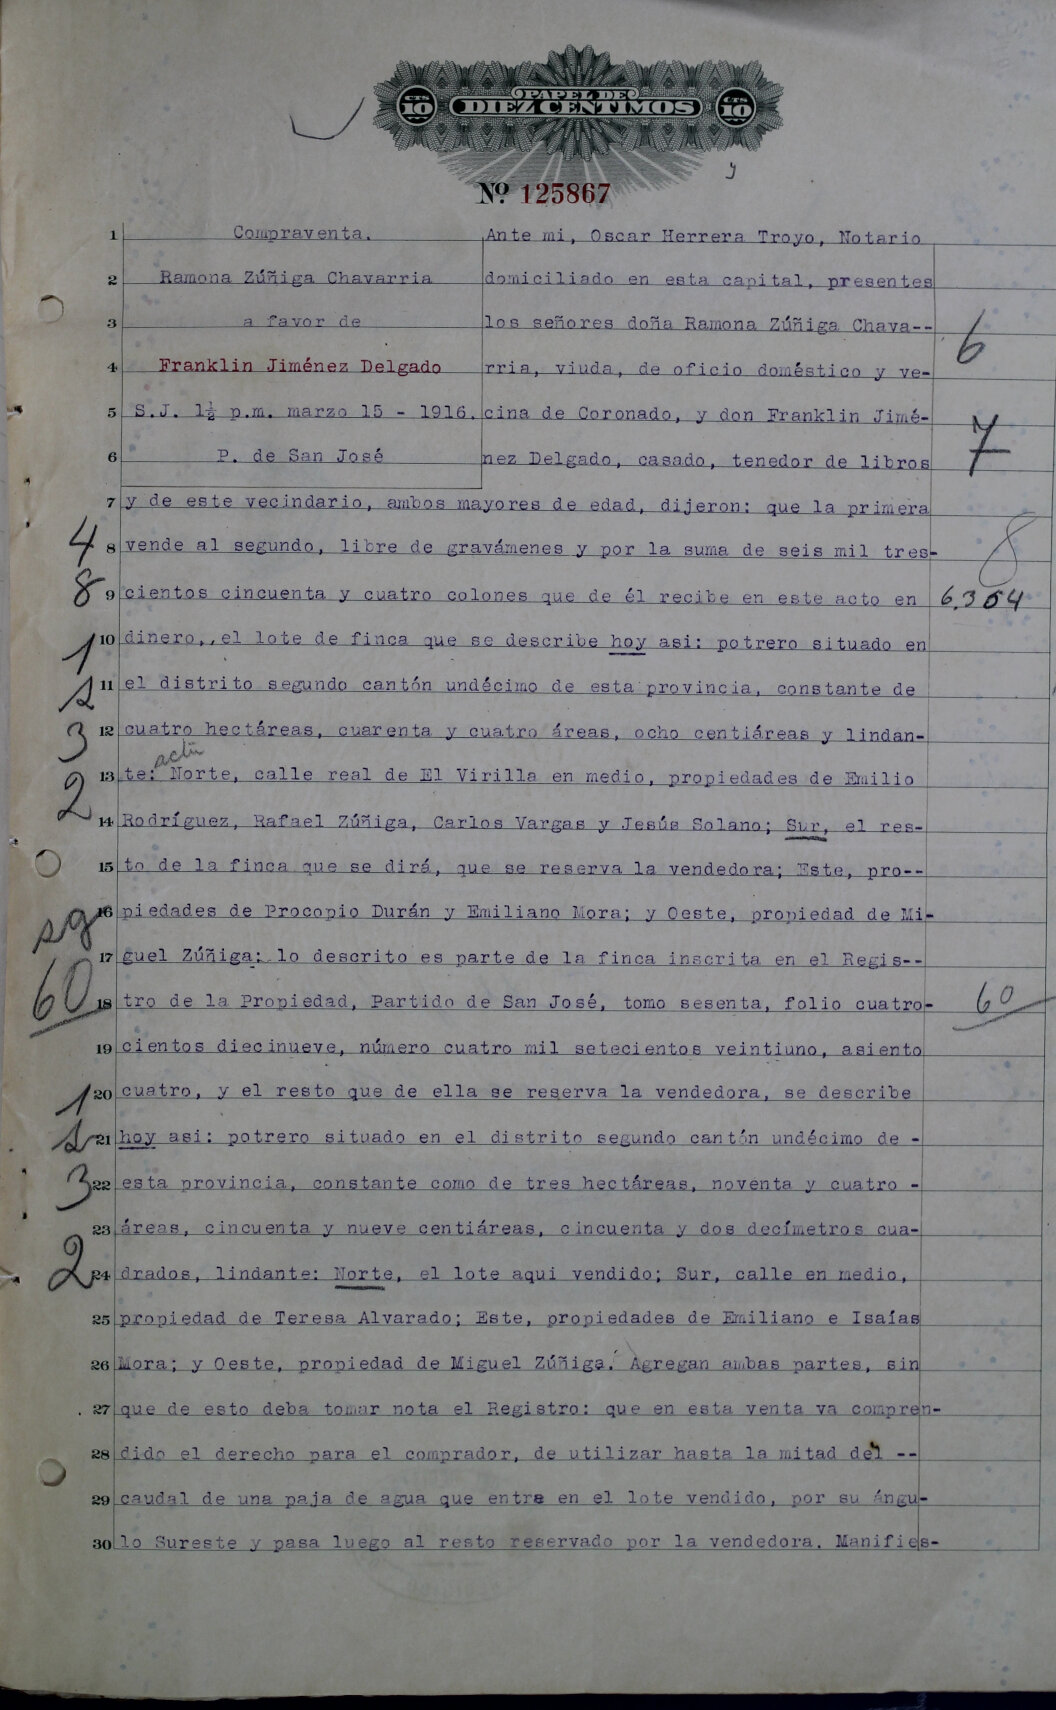 PAPEL DE
CTS 10 DIEZ CENTIMOS CTS 10
y
Nº. 125867
1 Compraventa. Ante mi, Oscar Herrera Troyo, Notario
2 Ramona Zúñiga Chavarria domiciliado en esta capital, presentes
3 a favor de los señores doña Ramona Zúñiga Chava--
6
4 Franklin Jiménez Delgado rria, viuda, de oficio doméstico y ve-
5 S.J. 1½ p.m. marzo 15 - 1916. cina de Coronado, y don Franklin Jimé-
7
6 P. de San José nez Delgado, casado, tenedor de libros
7 y de este vecindario, ambos mayores de edad, dijeron: que la primera
4 8 vende al segundo, libre de gravámenes y por la suma de seis mil tres- 8
8 9 cientos cincuenta y cuatro colones que de él recibe en este acto en 6.354
1 10 dinero,, el lote de finca que se describe hoy asi: potrero situado en
s 11 el distrito segundo cantón undécimo de esta provincia, constante de
3 12 cuatro hectáreas, cuarenta y cuatro áreas, ocho centiáreas y lindan-
2 13 te: Norte, calle real de El Virilla en medio, propiedades de Emilio
14 Rodríguez, Rafael Zúñiga, Carlos Vargas y Jesús Solano; Sur, el res-
15 to de la finca que se dirá, que se reserva la vendedora; Este, pro--
sg 16 piedades de Procopio Durán y Emiliano Mora; y Oeste, propiedad de Mi-
17 guel Zúñiga; lo descrito es parte de la finca inscrita en el Regis--
60 18 tro de la Propiedad, Partido de San José, tomo sesenta, folio cuatro- 60
19 cientos diecinueve, número cuatro mil setecientos veintiuno, asiento
1 20 cuatro, y el resto que de ella se reserva la vendedora, se describe
s 21 hoy asi: potrero situado en el distrito segundo cantón undécimo de -
3 22 esta provincia, constante como de tres hectáreas, noventa y cuatro -
23 áreas, cincuenta y nueve centiáreas, cincuenta y dos decímetros cua-
2 24 drados, lindante: Norte, el lote aqui vendido; Sur, calle en medio,
25 propiedad de Teresa Alvarado; Este, propiedades de Emiliano e Isaías
26 Mora; y Oeste, propiedad de Miguel Zúñiga. Agregan ambas partes, sin
27 que de esto deba tomar nota el Registro: que en esta venta va compren-
28 dido el derecho para el comprador, de utilizar hasta la mitad del --
29 caudal de una paja de agua que entra en el lote vendido, por su ángu-
30 lo Sureste y pasa luego al resto reservado por la vendedora. Manifies-